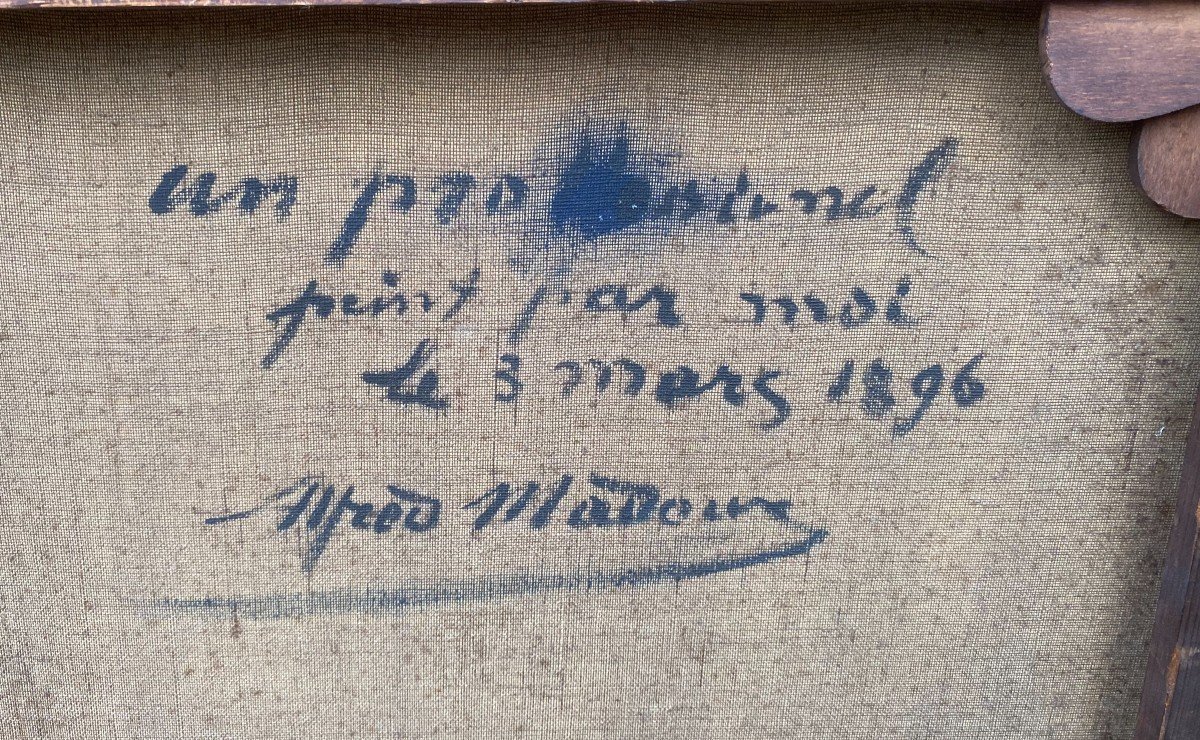 un professionnel
peint par moi
le 3 mars 1896
Alfred Madoux